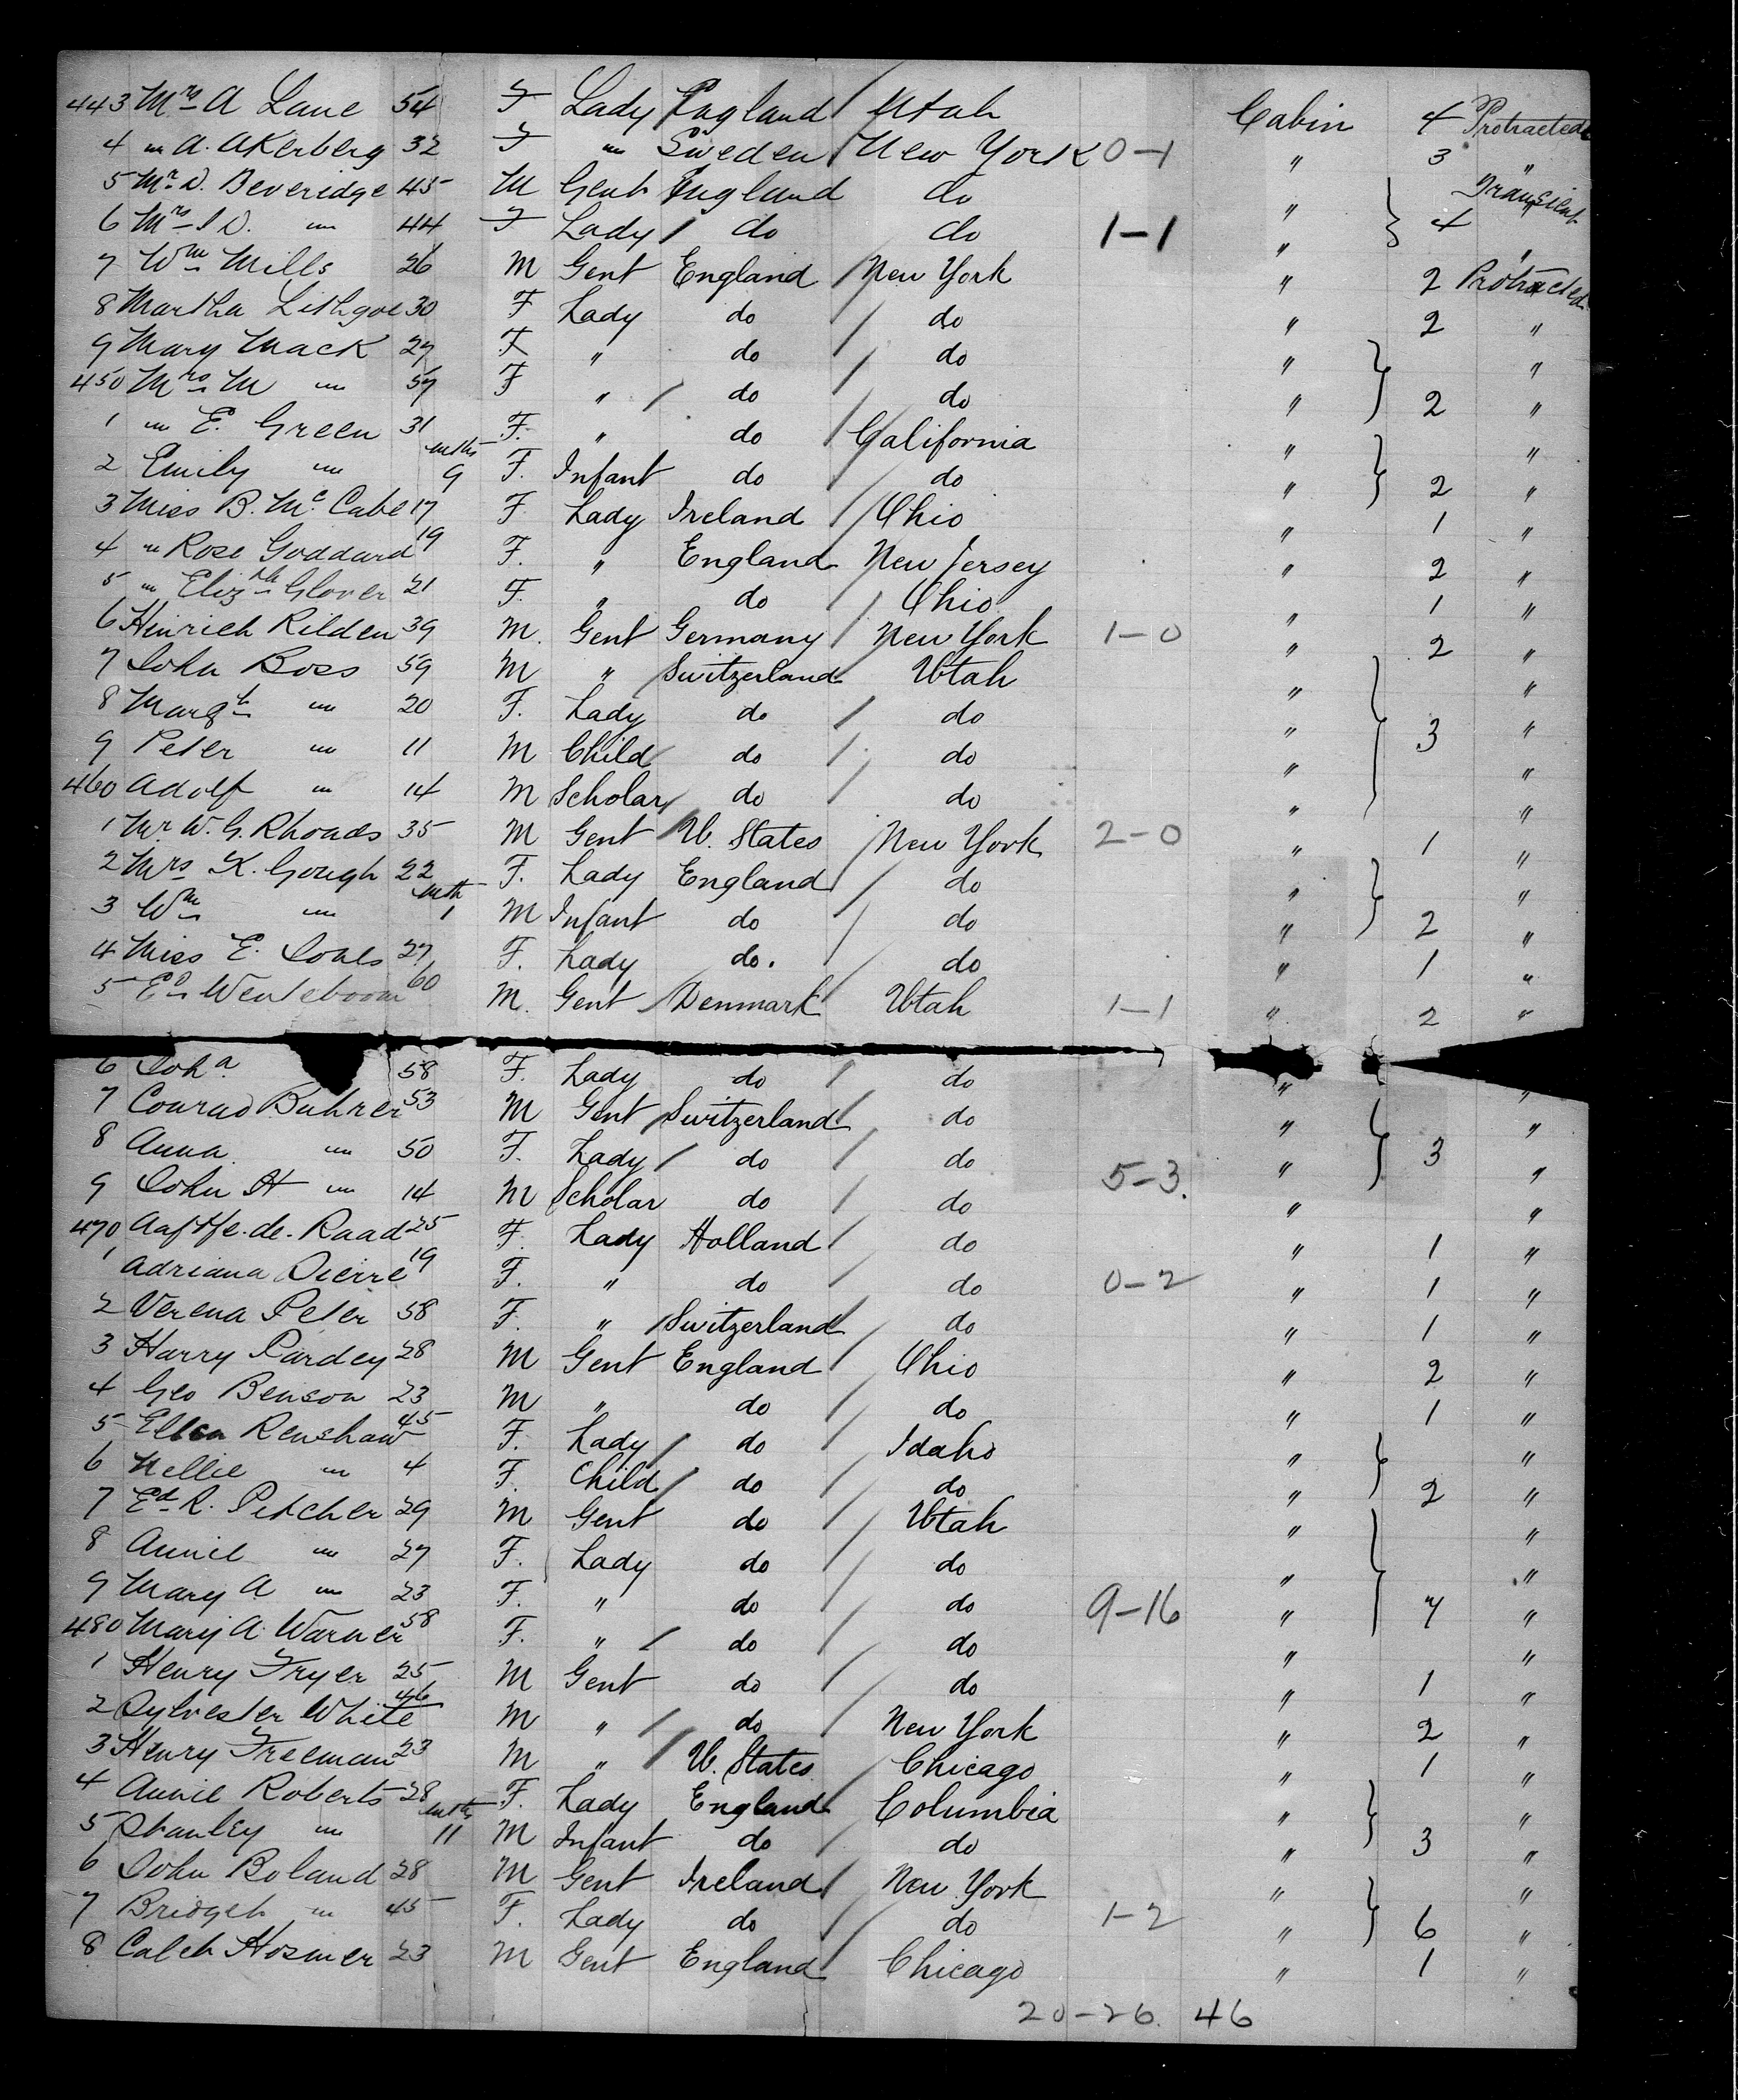 443 Mrs A Lane 54 F Lady England Utah Cabin 4 Protracted
4 " A. Akerberg 32 F " Sweden New York 0-1 " 3 "
5 Mr D. Beveridge 45 M Gent England do " Transient
6 Mrs D. " 44 F Lady do do 1-1 " 4 "
7 Wm Mills 26 M Gent England New York " 2 Protracted
8 Martha Lithgoe 30 F Lady do do " 2 "
9 Mary Mack 27 F " do do " "
450 Mrs M " 57 F " do do " 2 "
1 " E. Green 31 F. " do California " "
2 Emily " mths 9 F. Infant do do " 2 "
3 Miss B. Mc Cabe 17 F Lady Ireland Ohio " 1 "
4 " Rose Goddard 19 F. " England New Jersey " 2 "
5 " Elizth Glover 21 F. " do Ohio " 1 "
6 Hinrich Rilden 39 M. Gent Germany New York 1-0 " 2 "
7 John Boss 59 M " Switzerland Utah " "
8 Margt " 20 F. Lady do do " 3 "
9 Peter " 11 M Child do do " "
460 Adolf " 14 M Scholar do do " "
1 Mr W. G. Rhoads 35 M Gent U. States New York 2-0 " 1 "
2 Mrs K. Gough 22 F. Lady England do " "
3 Wm " mth 1 M Infant do do " 2 "
4 Miss E. Jones 27 F. Lady do. do " 1 "
5 Ed Wenteboom 60 M. Gent Denmark Utah 1-1 " 2 "
6 Joha 58 F. Lady do do " "
7 Conrad Buhrer 53 M Gent Switzerland do " "
8 Anna " 50 F. Lady do do 5-3. " 3 "
9 John H " 14 M Scholar do do " "
470 de. Raad 25 F. Lady Holland do " 1 "
1 Adriana Dierre 19 F. " do do 0-2 " 1 "
2 Verena Peter 58 F. " Switzerland do " 1 "
3 Harry Pardey 28 M Gent England Ohio " 2 "
4 Geo Benson 23 M " do do " 1 "
5 Ellen Renshaw 45 F. Lady do Idaho " "
6 Nellie " 4 F. Child do do " 2 "
7 Ed R. Pitcher 29 M Gent do Utah " "
8 Annie " 27 F. Lady do do " "
9 Mary A " 23 F. " do do 9-16 " 7 "
480 Mary A. Warner 58 F. " do do " "
1 Henry Fryer 25 M Gent do do " 1 "
2 Sylvester White 46 M " do New York " 2 "
3 Henry Freeman 23 M " U. States Chicago " 1 "
4 Annie Roberts 28 F. Lady England Columbia " "
5 Stanley " mths 11 M Infant do do " 3 "
6 John Boland 28 M Gent Ireland New York " "
7 Bridget " 45 F. Lady do do 1-2 " 6 "
8 Caleb Hosmer 23 M Gent England Chicago " 1 "
20-26. 46